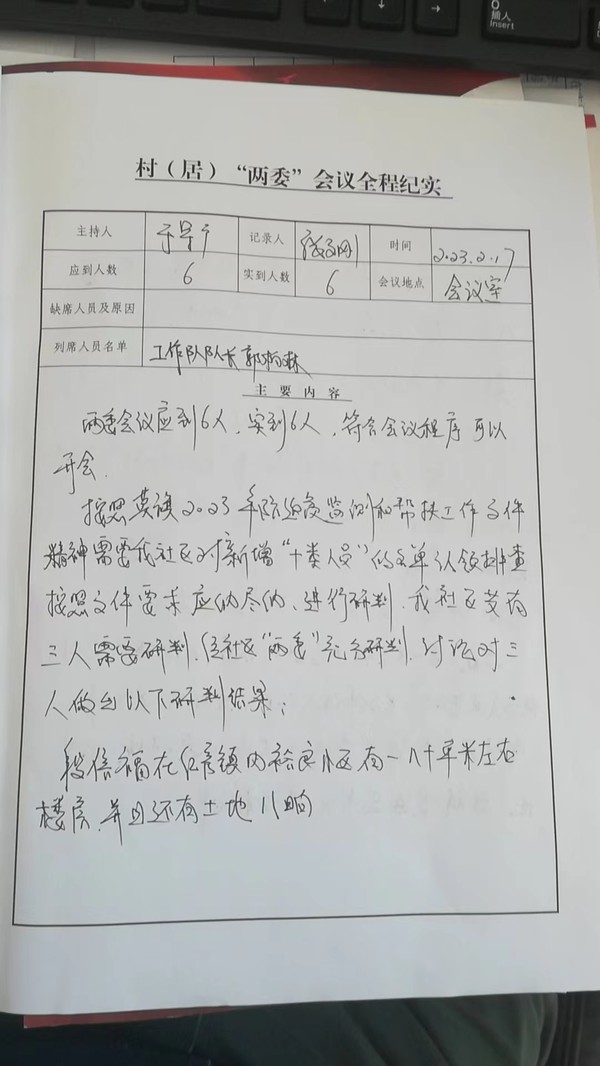 插入
Insert
村（居）“两委”会议全程纪实
主持人 记录人 时间 2023.2.17
应到人数 6 实到人数 6 会议地点 会议室
缺席人员及原因
列席人员名单 工作队队长 郭
主要内容
两委会议应到6人，实到6人，符合会议程序可以
开会.
按照莫旗2023年防返贫监测和帮扶工作文件
精神需要我社区对新增“十类人员”的名单认领排查
按照文件要求应纳尽纳、进行研判.我社区共有
三人需要研判.经社区“两委”充分研判.讨论对三
人做出以下研判结果：
信福在红彦镇内裕良小区有一八十平米左右
楼房.并且还有土地八晌